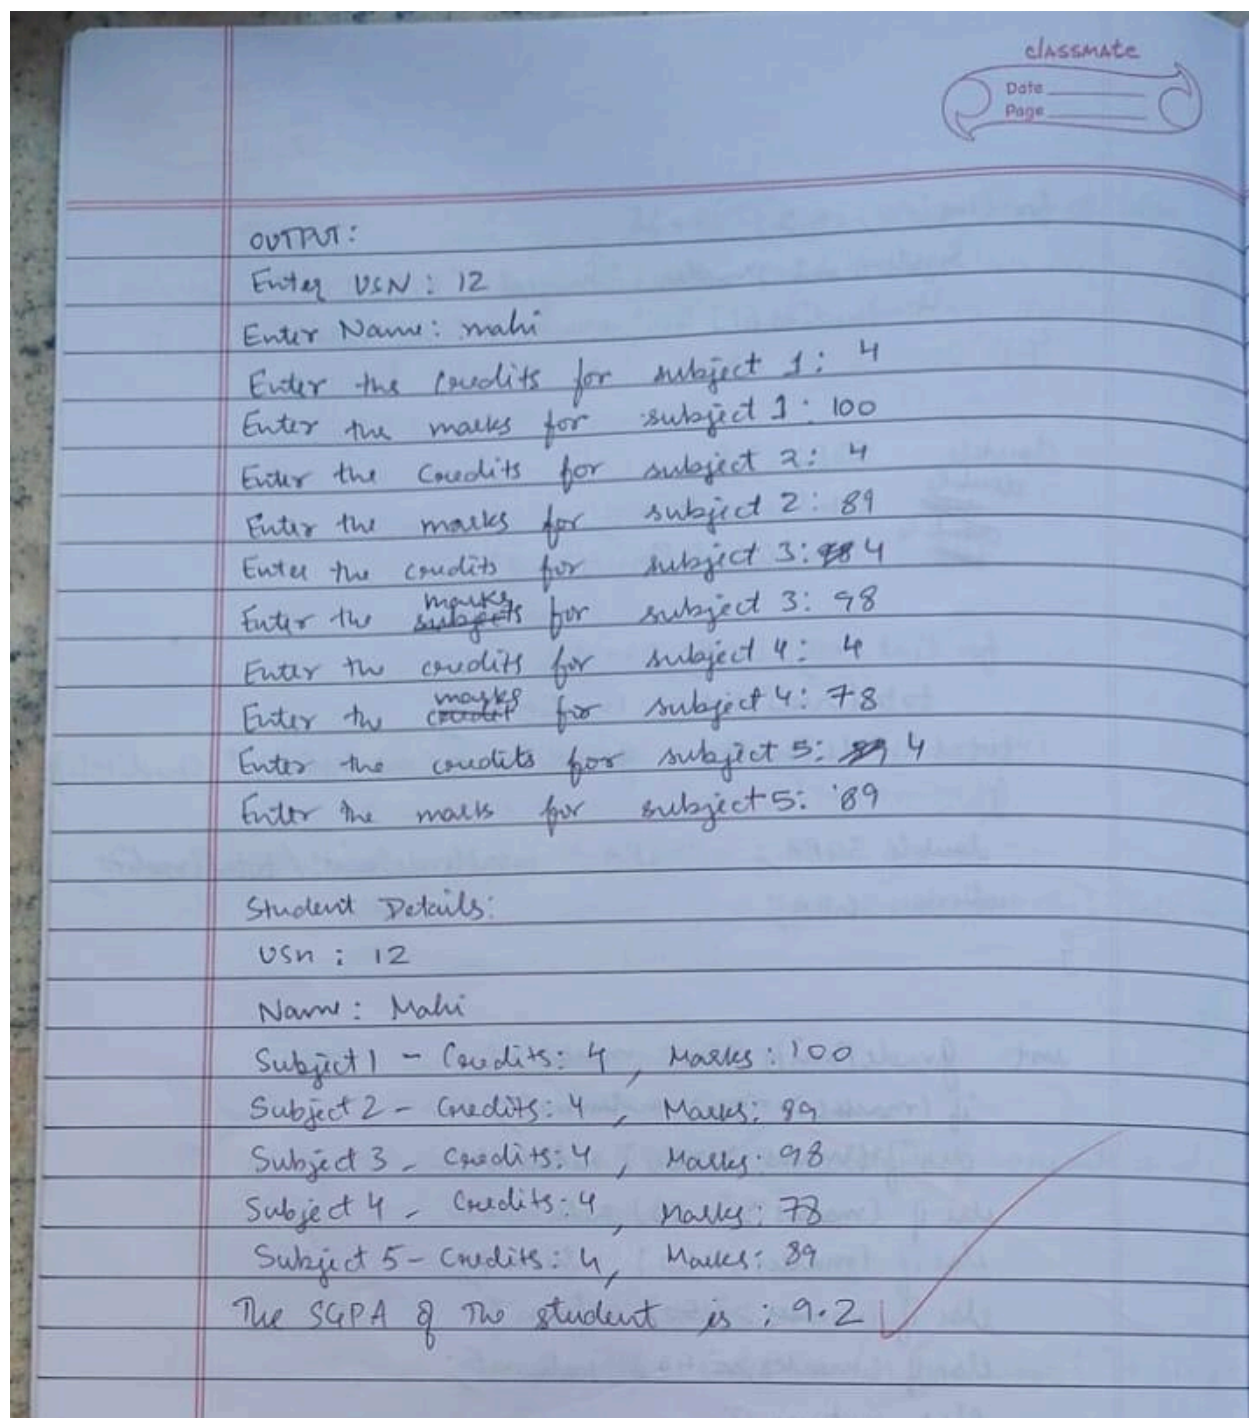 classmate
Date
Page
OUTPUT:
Enter USN : 12
Enter Name: mahi
Enter the Credits for subject 1: 4
Enter the marks for subject 1: 100
Enter the Credits for subject 2: 4
Enter the marks for subject 2: 89
Enter the credits for subject 3: 4
Enter the marks for subject 3: 98
Enter the credits for subject 4: 4
Enter the marks for subject 4: 78
Enter the credits for subject 5: 4
Enter the marks for subject 5: 89
Student Details:
USn : 12
Name: Mahi
Subject 1 - Credits: 4, Marks: 100
Subject 2 - Credits: 4, Marks: 89
Subject 3 - Credits: 4, Marks: 98
Subject 4 - Credits: 4, Marks: 78
Subject 5 - Credits: 4, Marks: 89
The SGPA of The student is : 9.2